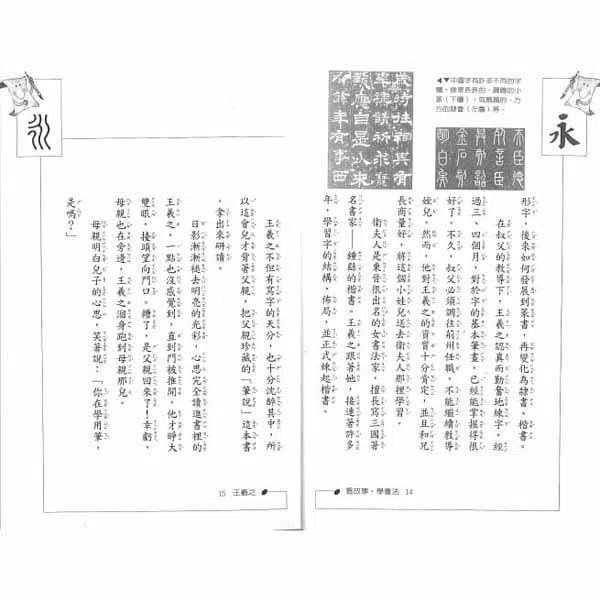 永
◀▼中國字有許多不同的字
體，像是長長的、圓圓的小
方的隸書（左圖）等。
形字，後來如何發展到篆書，再變化為隸書、楷書。
在叔父的教導下，王羲之認真而勤奮地練字，經
過三、四個月，對於字的基本筆畫，已經能掌握得很
好了。不久，叔父必須調往荊州任職，不能繼續教導
姪兒，然而，他對王羲之的資質十分肯定，並且和兄
長商量好，將這個小姪兒送去衛夫人那裡學習。
衛夫人是東晉很出名的女書法家，擅長寫三國著
名書家——鍾繇的楷書。王羲之跟著她，接連著許多
年，學習字的結構、佈局，並正式練起楷書。
看故事‧學書法 14
王羲之不但有寫字的天分，也十分沈醉其中，所
以這會兒才背著父親，把父親珍藏的「筆說」這本書
，拿出來研讀。
日影漸漸褪去明亮的光彩，心思完全讀進書裡的
王羲之，一點也沒感覺到，直到門被推開，他才睜大
雙眼，抬頭望向門口。糟了，是父親回來了！幸虧，
母親也在旁邊，王羲之溜身跑到母親那兒。
母親明白兒子的心思，笑著說：「你在學用筆，
是嗎？」
15 王羲之